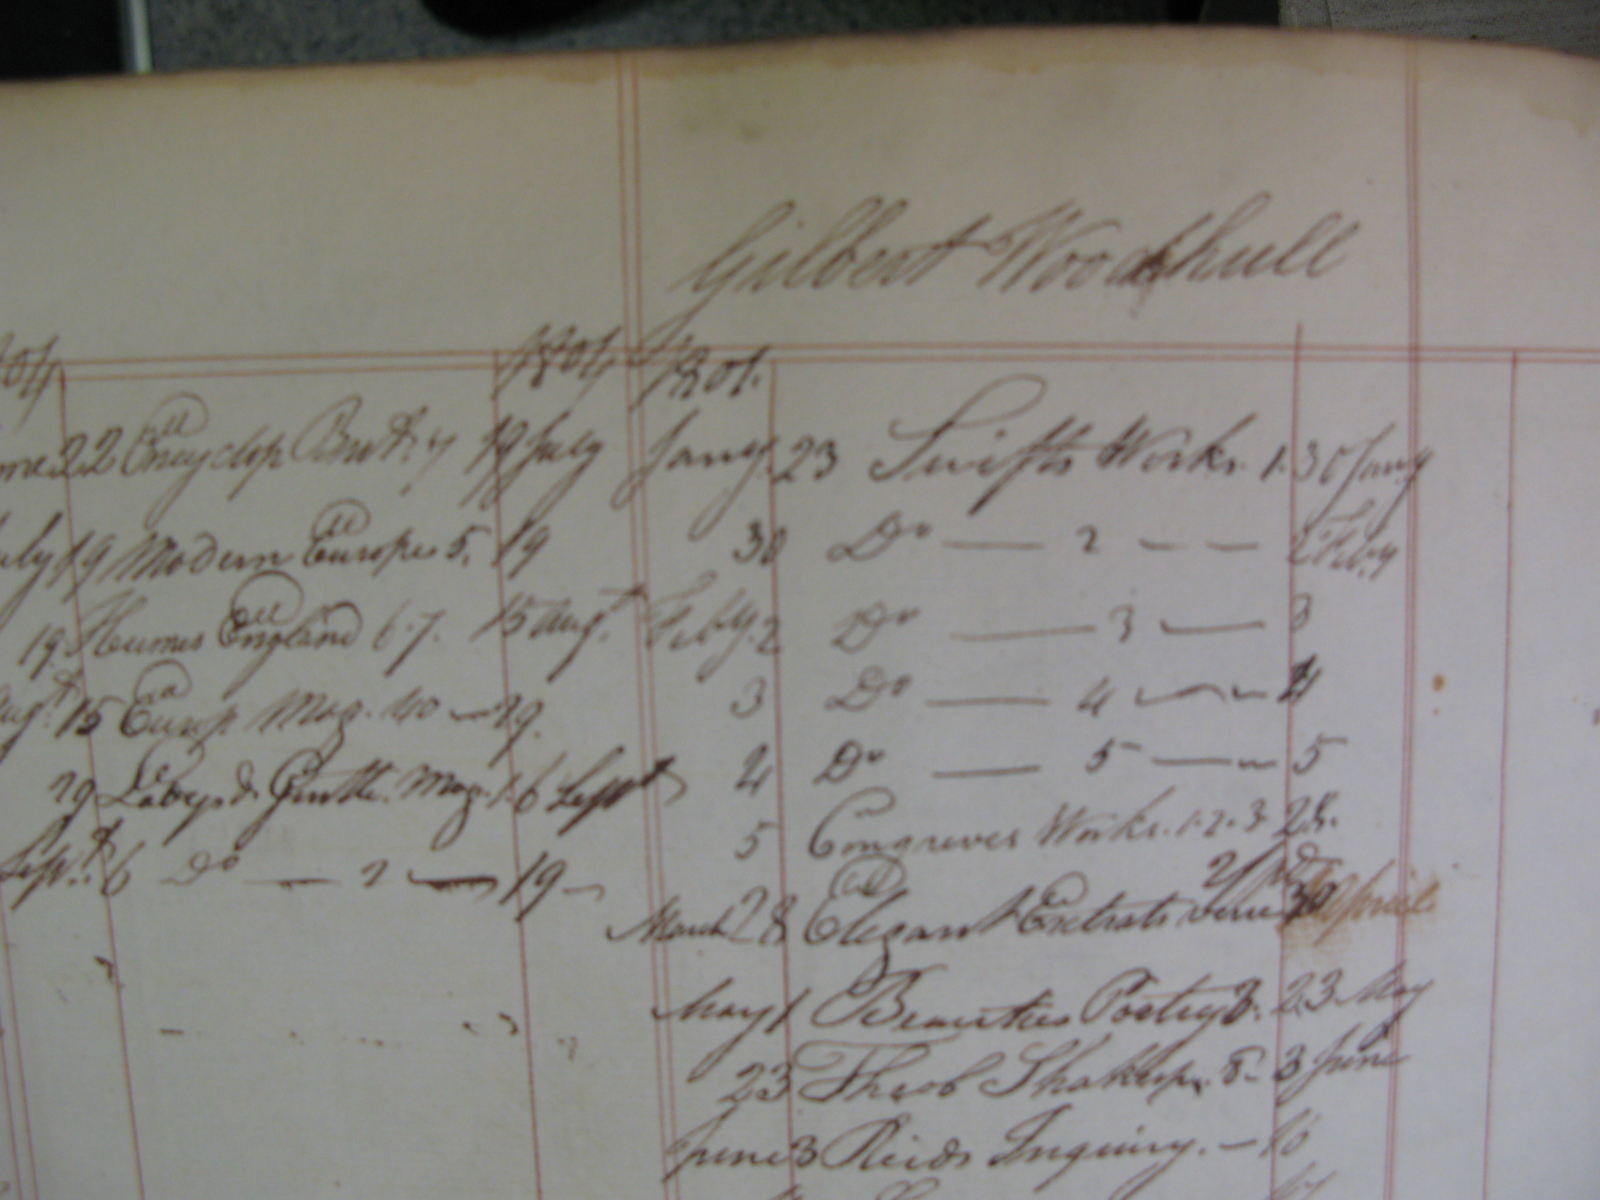 Gilbert Woodhull
1804 1801.
22 Encyclop Brit. 7 19 July
July 19 Modern Europe 5. 19
19 Humes England 6.7. 15 Augt
Augt 15 Europ Mag. 40 — 29.
29 Ladys & Gentle. Mag. 1. 6 Sept
Sept. 6 Do — 2 — 19 —
Jany. 23 Swifts Works. 1. 30 Jany
30 Do — 2 — — 2 Feby
Feby. 2 Do — 3 — 3
3 Do — 4 — 4
4 Do — 5 — 5
5 Congreves Works. 1. 2. 3 28.
March 28 Elegant Extrats verse April
May 1 Beauties Poetry 8. 23 May
23 Theob Shakesp. 8 - 3 June
June 3 Reids Inquiry. — 16